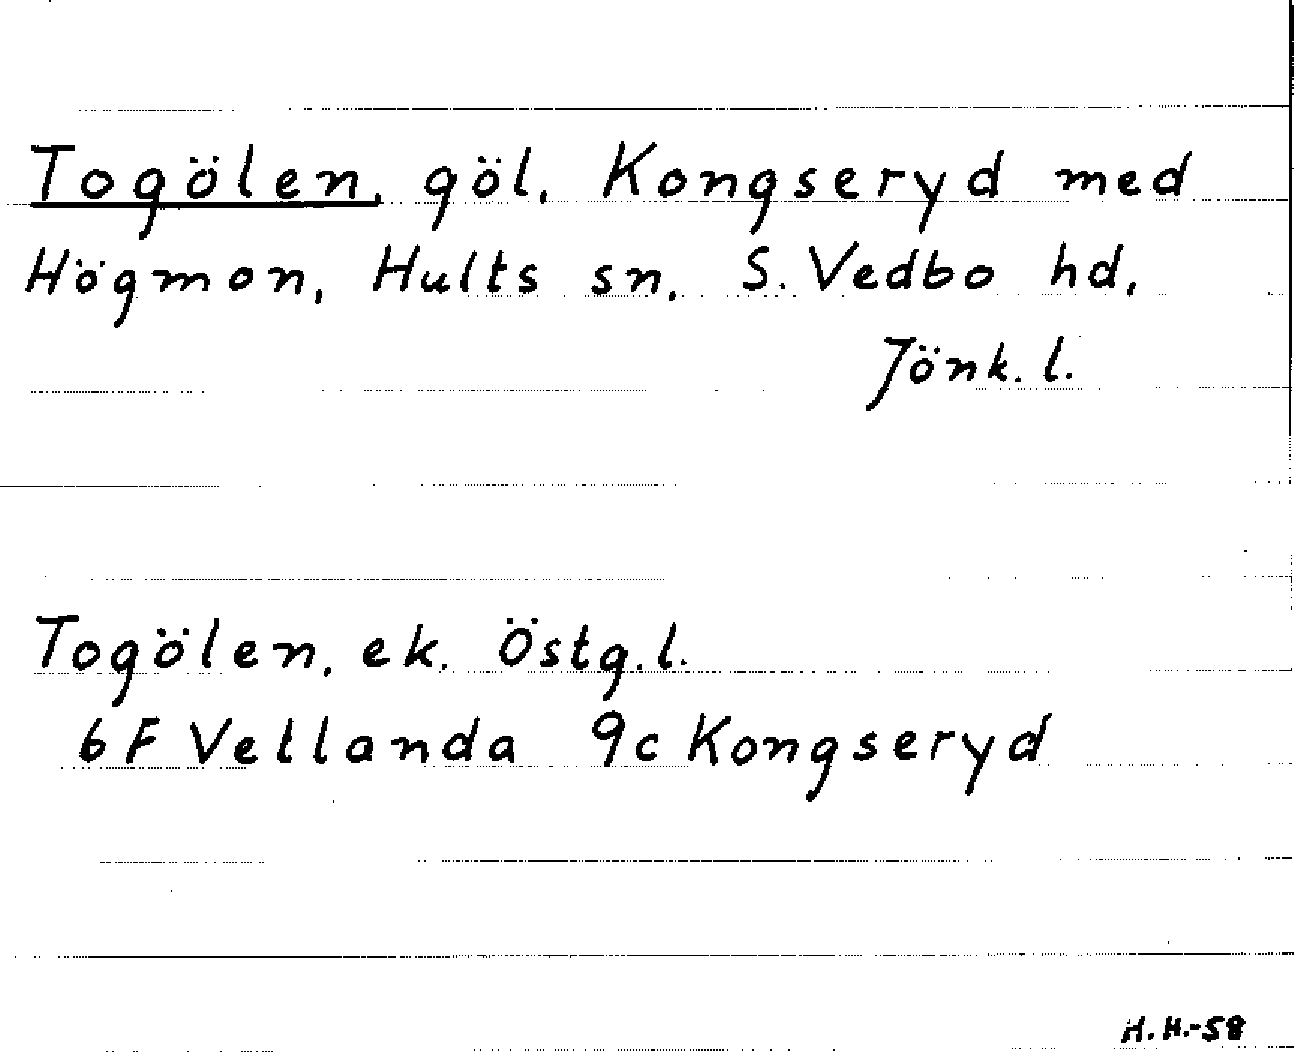 Togölen, göl, Kongseryd med
Högmon, Hults sn, S. Vedbo hd,
Jönk. l.
Togölen, ek. Östg. l.
6 F Vetlanda 9c Kongseryd
H. H.-58